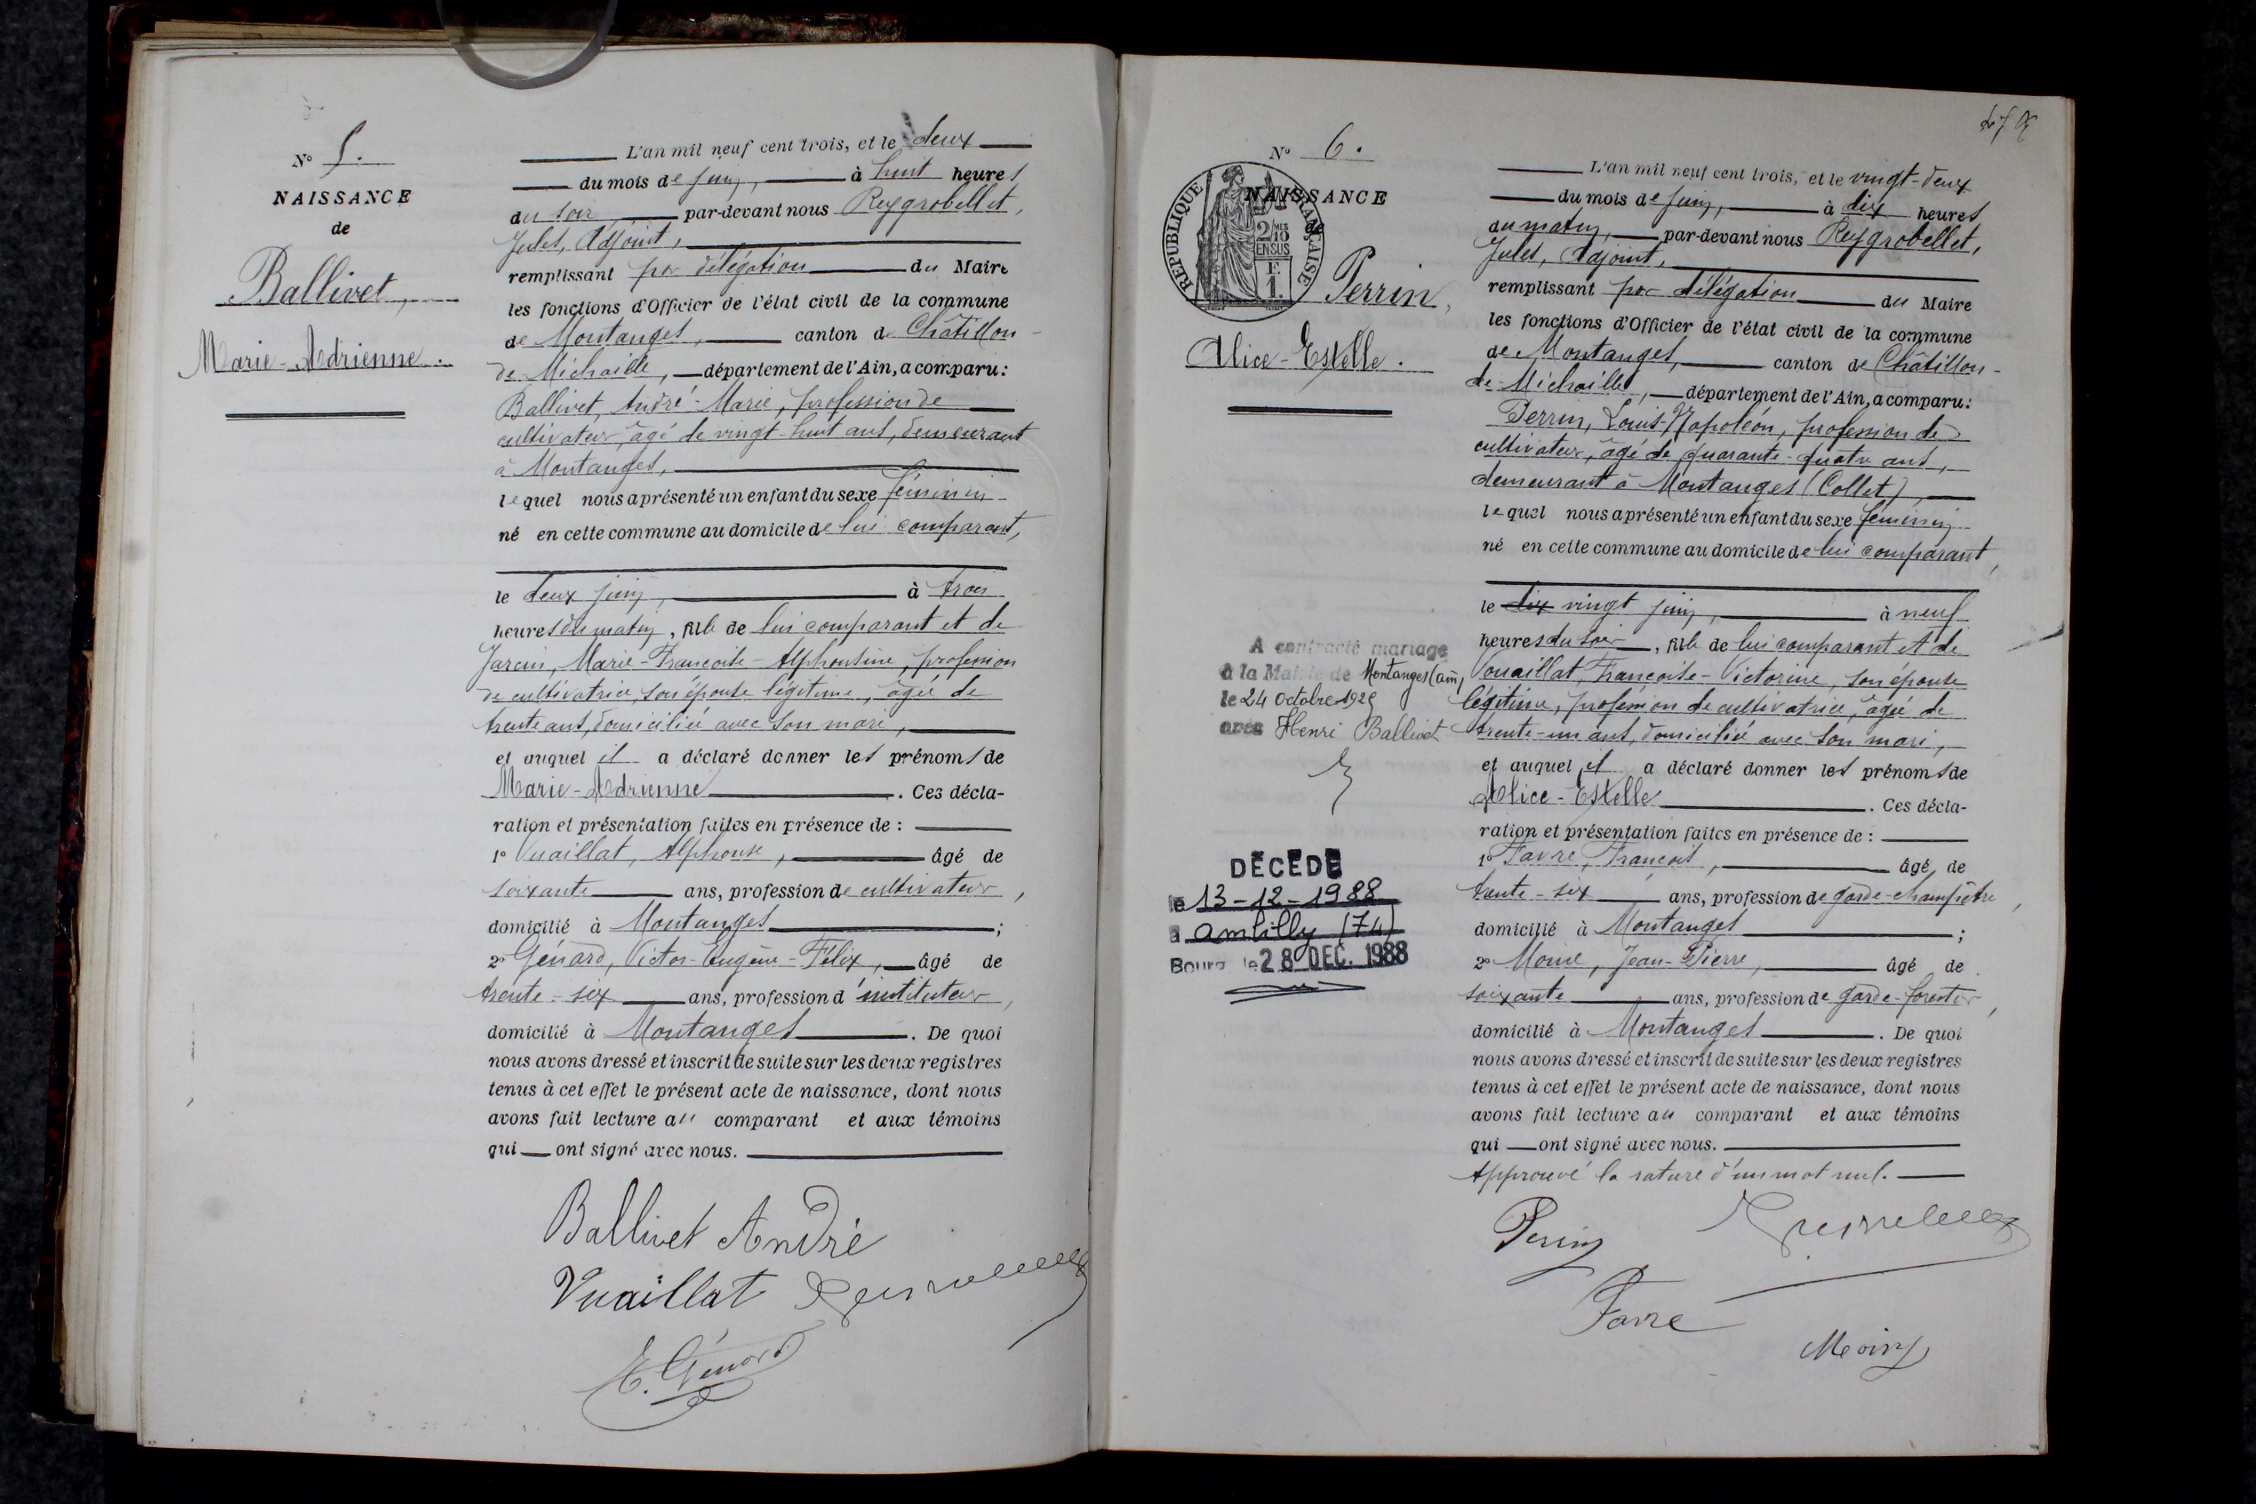 N° 5.
NAISSANCE
de
Ballivet,
Marie-Adrienne.
L'an mil neuf cent trois, et le deux
du mois de juin, à huit heures
du soir, par-devant nous Reygrobellet,
Jules, Adjoint,
remplissant par délégation du Maire
les fonctions d'Officier de l'état civil de la commune
de Montanges, canton de Châtillon-
de Michaille, département de l'Ain, a comparu:
Ballivet, André-Marie, profession de
cultivateur, âgé de vingt-huit ans, demeurant
à Montanges,
lequel nous a présenté un enfant du sexe féminin
né en cette commune au domicile de lui comparant,
le deux juin, à trois
heures du matin, fille de lui comparant et de
Marie-Françoise-Alphonsine, profession
de cultivatrice, son épouse légitime, âgée de
trente ans, domiciliée avec son mari,
et auquel il a déclaré donner les prénoms de
Marie-Adrienne. Ces décla-
ration et présentation faites en présence de :
1° Vuaillat, Alphonse, âgé de
soixante ans, profession de cultivateur,
domicilié à Montanges;
2° Génard, Victor-Eugène-Félix, âgé de
trente-six ans, profession d'instituteur,
domicilié à Montanges. De quoi
nous avons dressé et inscrit de suite sur les deux registres
tenus à cet effet le présent acte de naissance, dont nous
avons fait lecture au comparant et aux témoins
qui ont signé avec nous.
Ballivet André
Vuaillat
E. Génard
N° 6.
NAISSANCE
de
REPUBLIQUE FRANÇAISE
2/10 EN SUS
F.
1.
Perrin,
Alice-Estelle.
L'an mil neuf cent trois, et le vingt-deux
du mois de juin, à dix heures
du matin, par-devant nous Reygrobellet,
Jules, Adjoint,
remplissant par délégation du Maire
les fonctions d'Officier de l'état civil de la commune
de Montanges, canton de Châtillon-
de-Michaille, département de l'Ain, a comparu:
Perrin, Louis-Napoléon, profession de
cultivateur, âgé de quarante-quatre ans,
demeurant à Montanges (Collet),
lequel nous a présenté un enfant du sexe féminin
né en cette commune au domicile de lui comparant,
le dix vingt juin, à neuf
heures du soir, fille de lui comparant et de
Vouaillat, Françoise-Victorine, son épouse
légitime, profession de cultivatrice, âgée de
trente-un ans, domiciliée avec son mari,
et auquel il a déclaré donner les prénoms de
Alice-Estelle. Ces décla-
ration et présentation faites en présence de :
1° Favre, François, âgé de
trente-six ans, profession de garde-champêtre,
domicilié à Montanges;
2° Moine, Jean-Pierre, âgé de
soixante ans, profession de garde-forestier,
domicilié à Montanges. De quoi
nous avons dressé et inscrit de suite sur les deux registres
tenus à cet effet le présent acte de naissance, dont nous
avons fait lecture au comparant et aux témoins
qui ont signé avec nous.
Approuvé la rature d'un mot nul.
Perrin
Favre
A contracté mariage
à la Mairie de Montanges (Ain)
le 24 Octobre
avec Henri Ballivet
DÉCÉDÉ
le 13-12-1988
à Ambilly (74)
Bourg le 28 DEC. 1988